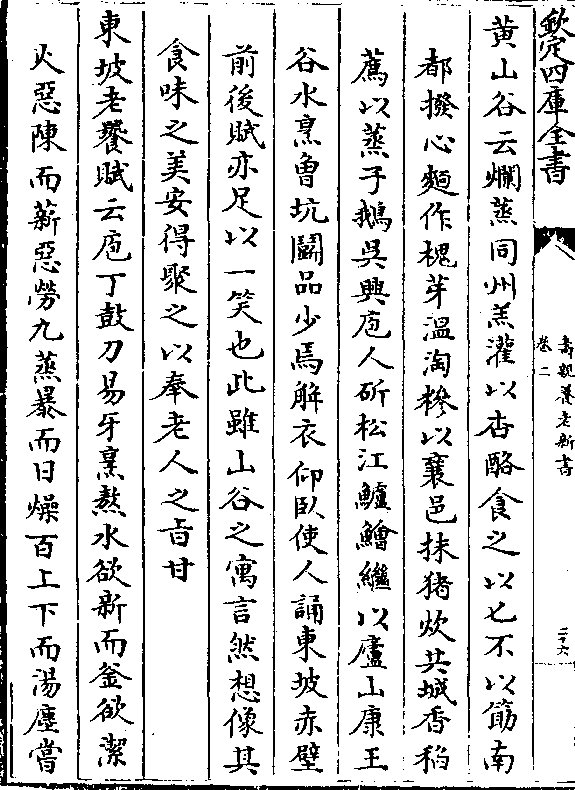 欽定四庫全書
壽親養老新書
卷二
二十六
黄山谷云爛蒸同州羔灌以杏酪食之以匕不以筯南
都撥心麪作槐芽溫淘糝以襄邑抹猪炊共城香稻
薦以蒸子鵝吳興庖人斫松江鱸鱠繼以廬山康王
谷水烹曾坑鬬品少焉解衣仰臥使人誦東坡赤壁
前後賦亦足以一笑也此雖山谷之寓言然想像其
食味之美安得聚之以奉老人之㫖甘
東坡老饕賦云庖丁鼓刀易牙烹熬水欲新而釡欲潔
火惡陳而薪惡勞九蒸暴而日燥百上下而湯鏖嘗